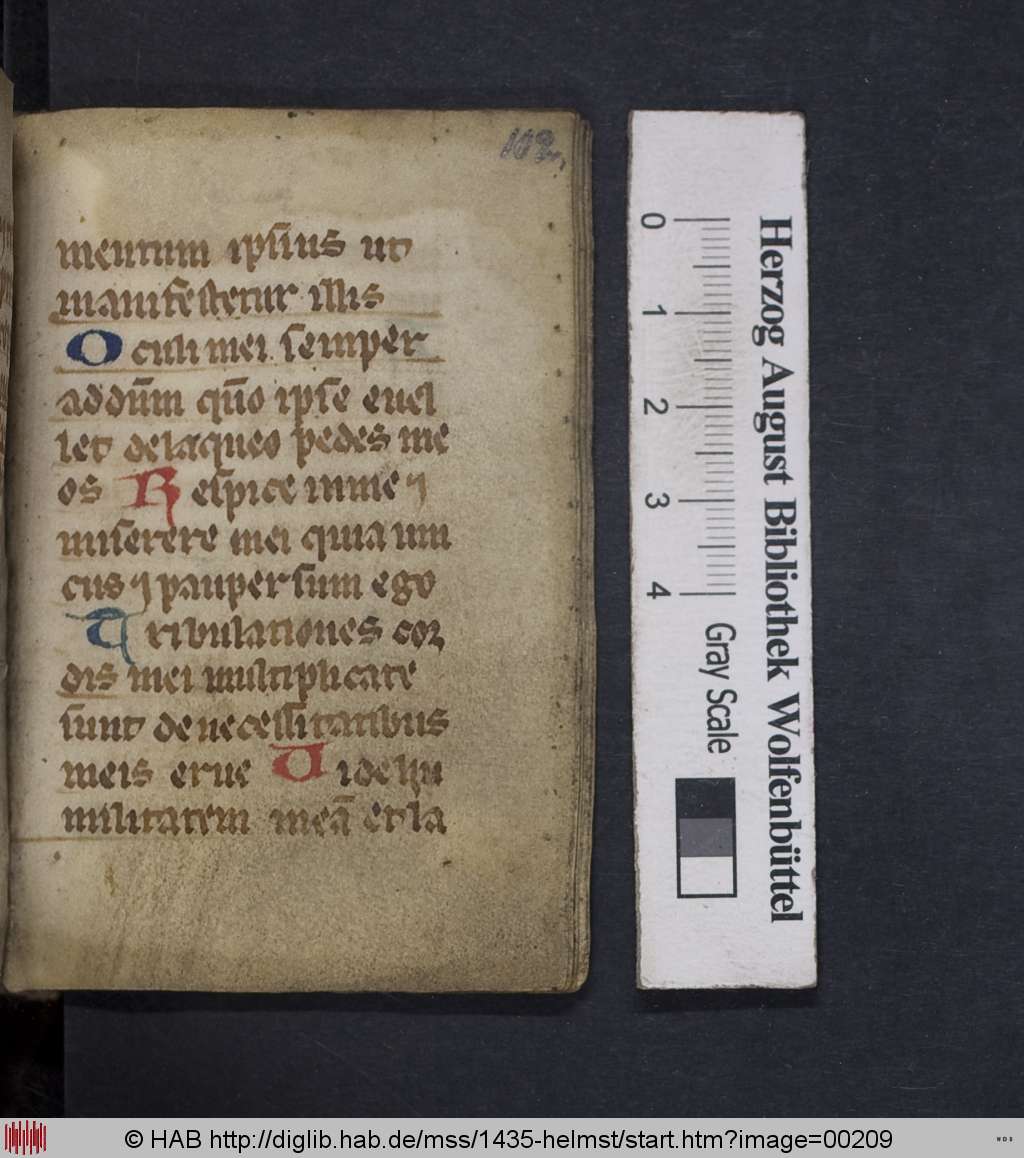 103r
mentum ipsi͂us ut
manifestetur illis
Oculi mei semper
ad dn͂m qn͂o ipse euel
let delaqueo pedes me
os Respice in me ⁊
miserere mei quia uni
cus ⁊ pauper sum ego
Tribulationes coꝛ
dis mei multiplicate
sunt de necessitatibus
meis erue Uide hu
militatem meā et la
Herzog August Bibliothek Wolfenbüttel
0 1 2 3 4
Gray Scale
© HAB http://diglib.hab.de/mss/1435-helmst/start.htm?image=00209